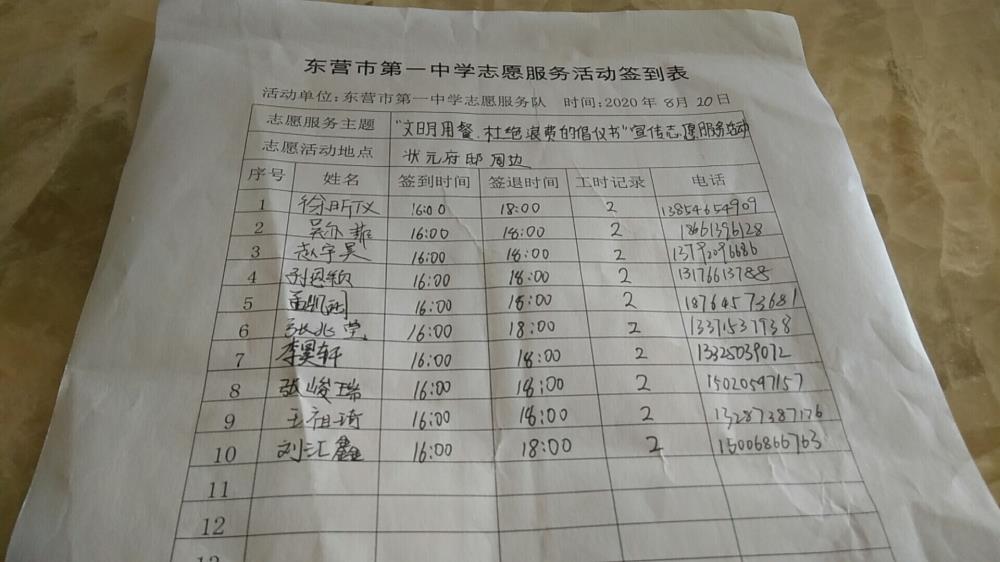 东营市第一中学志愿服务活动签到表
活动单位:东营市第一中学志愿服务队 时间:2020年8月20日
志愿服务主题 "文明用餐.杜绝浪费的倡仪书"宣传志愿服务活动
志愿活动地点 状元府邸周边
序号 姓名 签到时间 签退时间 工时记录 电话
1 徐昕仪 16:00 18:00 2 13854654909
2 吴亦菲 16:00 18:00 2 18661396128
3 赵宇昊 16:00 18:00 2 13792096686
4 刘恩颖 16:00 18:00 2 13176613788
5 16:00 18:00 2 18764573681
6 张兆莹 16:00 18:00 2 13371537938
7 李昊轩 16:00 18:00 2 13325039072
8 张峻瑞 16:00 18:00 2 15020597157
9 王祖琦 16:00 18:00 2 13287387176
10 刘汇鑫 16:00 18:00 2 15006866763
11
12
13